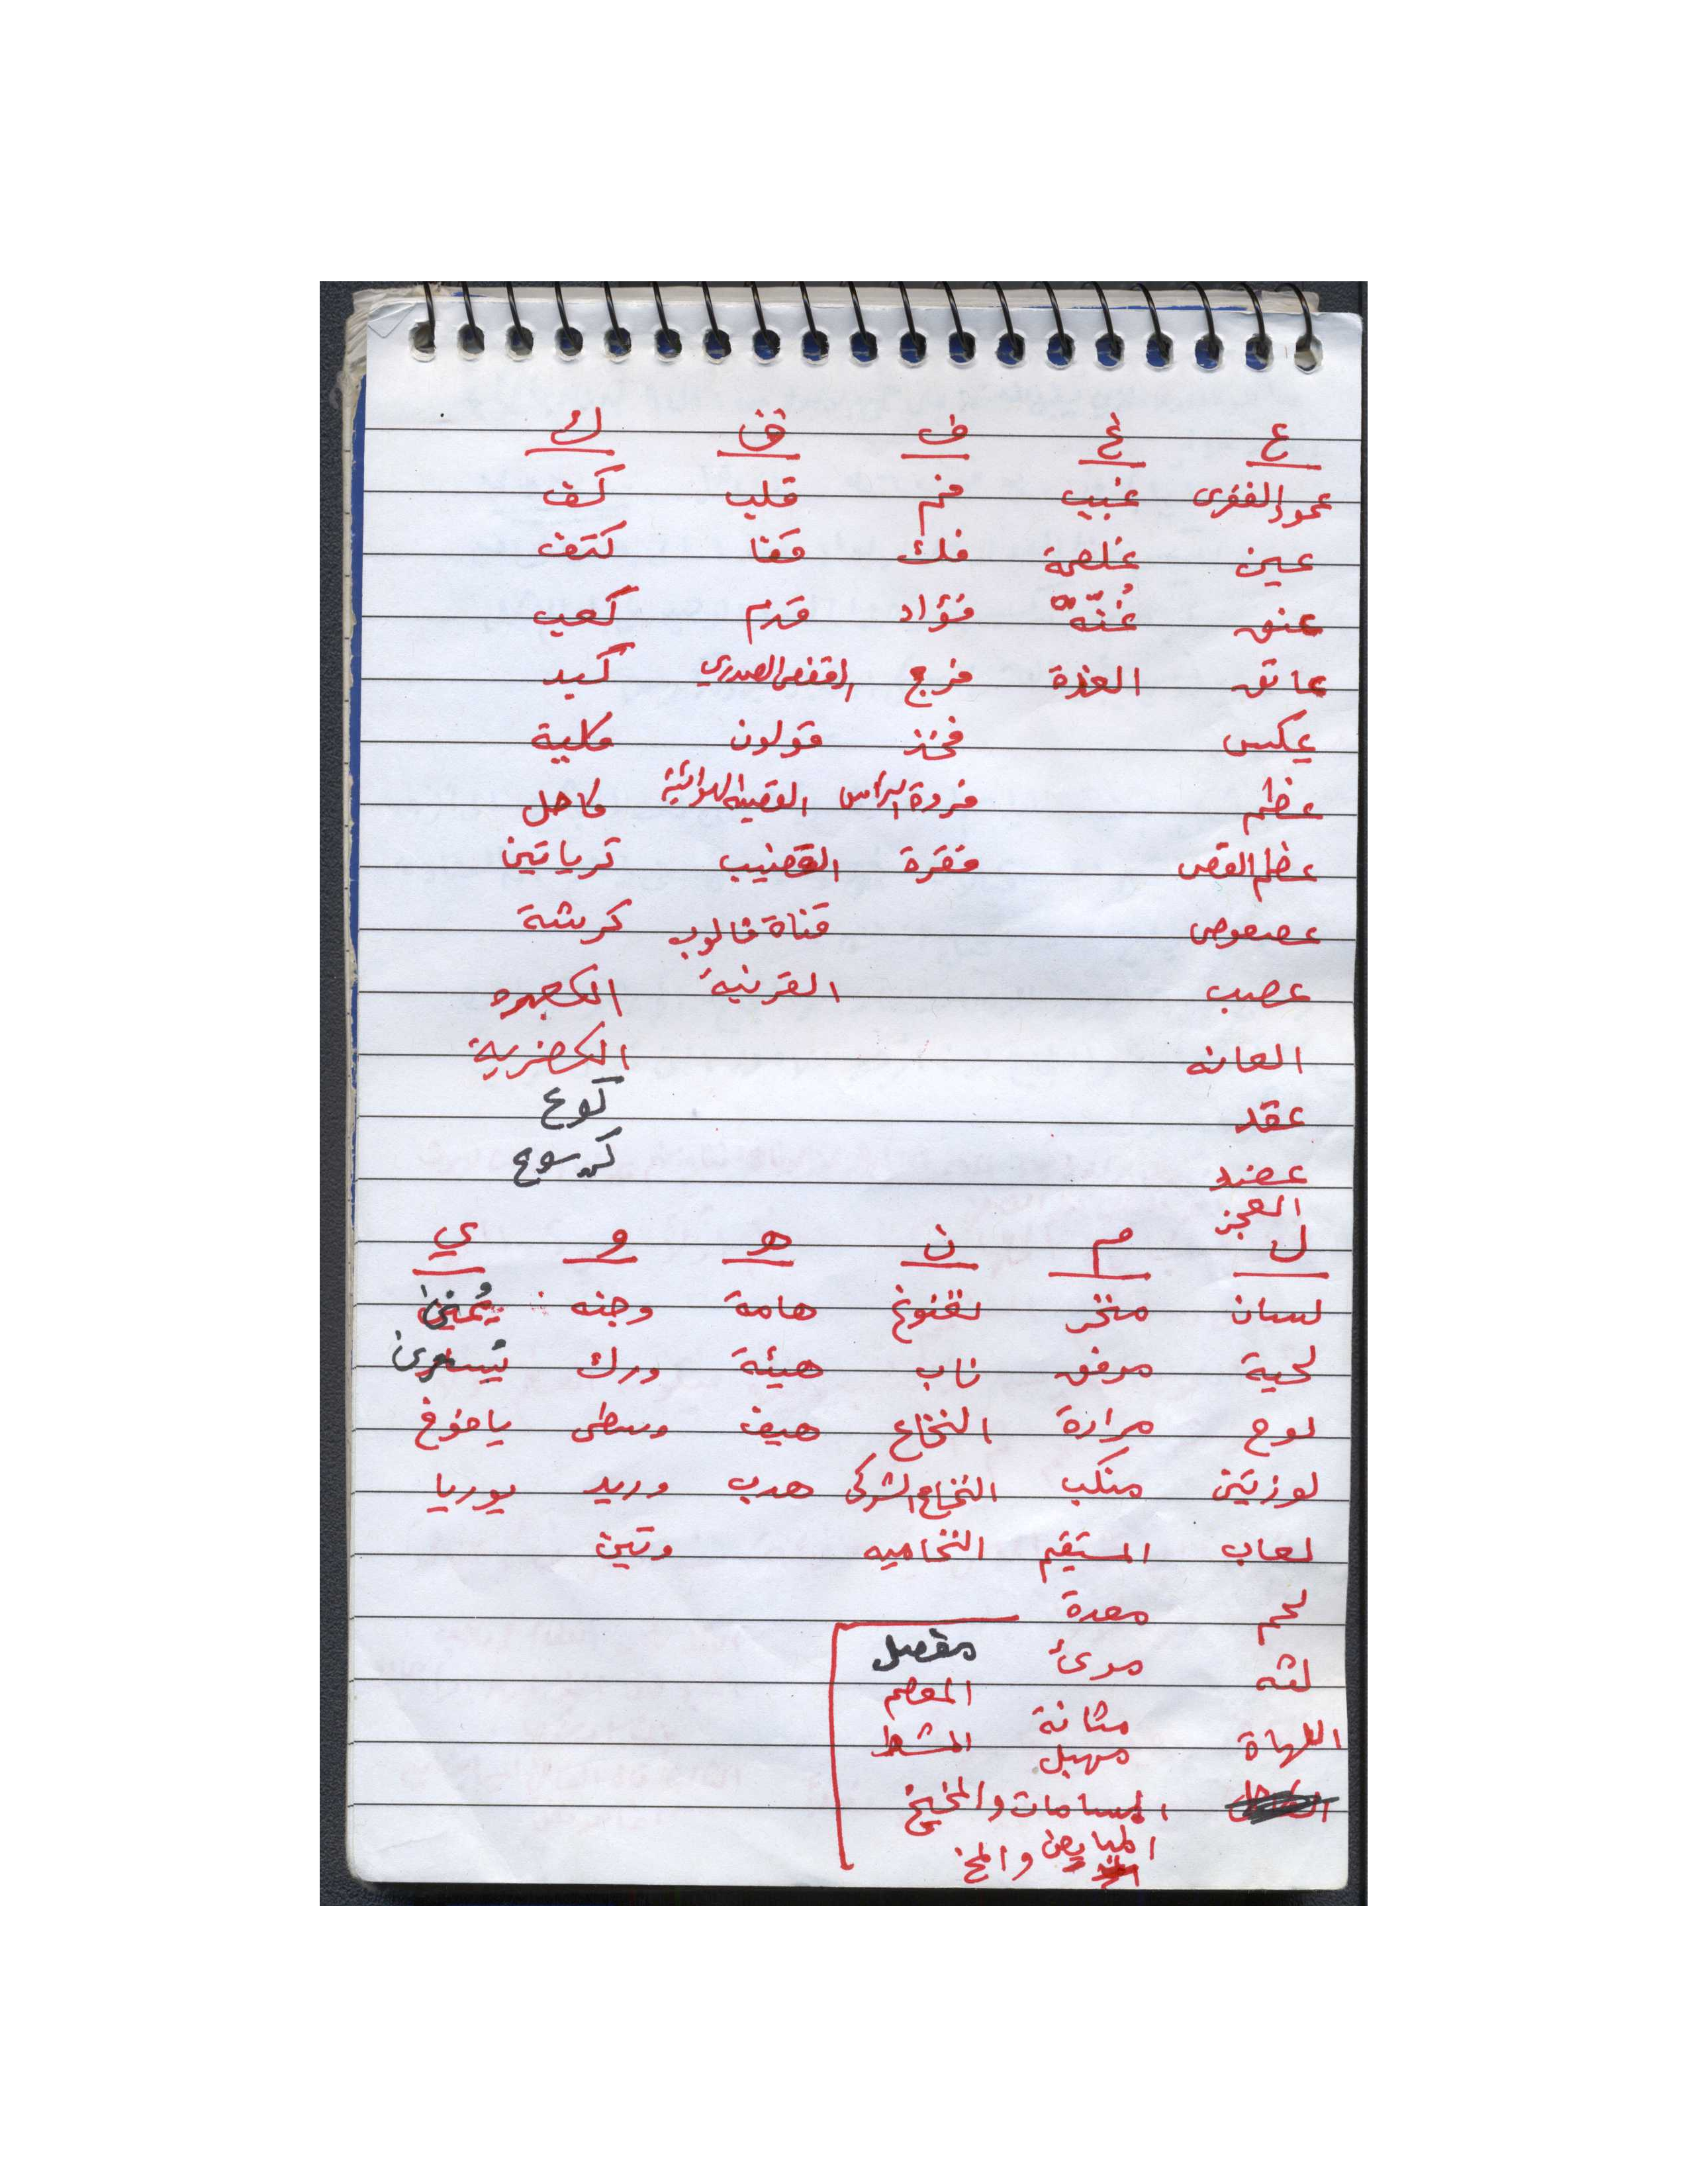 ع غ ف ق ك
عمود الفقرى غبيب فم قلب كف
عين غلصمة فك قفا كتف
عنق غُنّه فؤاد قدم كعب
عاتق الغدة فرج القفص الصدري كبد
عكس فخذ قولون كلية
عظم فروة الرأس القصبة الهوائية كاحل
عظم القص فقرة القضيب كرياتين
عصعوص قناة فالوب كرشة
عصب القرنية
العانه الكظرية
عقد كوع
عضد كرسوع
العجز
ل م ن هـ و ي
لسان منخر نغنوغ هامة وجنه يُمنى
لحية مرفق ناب هيئة ورك يُسرى
لوح مرارة النخاع هيف وسطى يافوخ
لوزتين منكب النخاع الشوكى هدب وريد يوريا
لعاب المستقيم النخاميه وتين
لحم معدة
لثه مرئ مفصل
المعصم
اللهاة مثانة المشط
مهبل
المسامات والمخيخ
المبايض والمخ